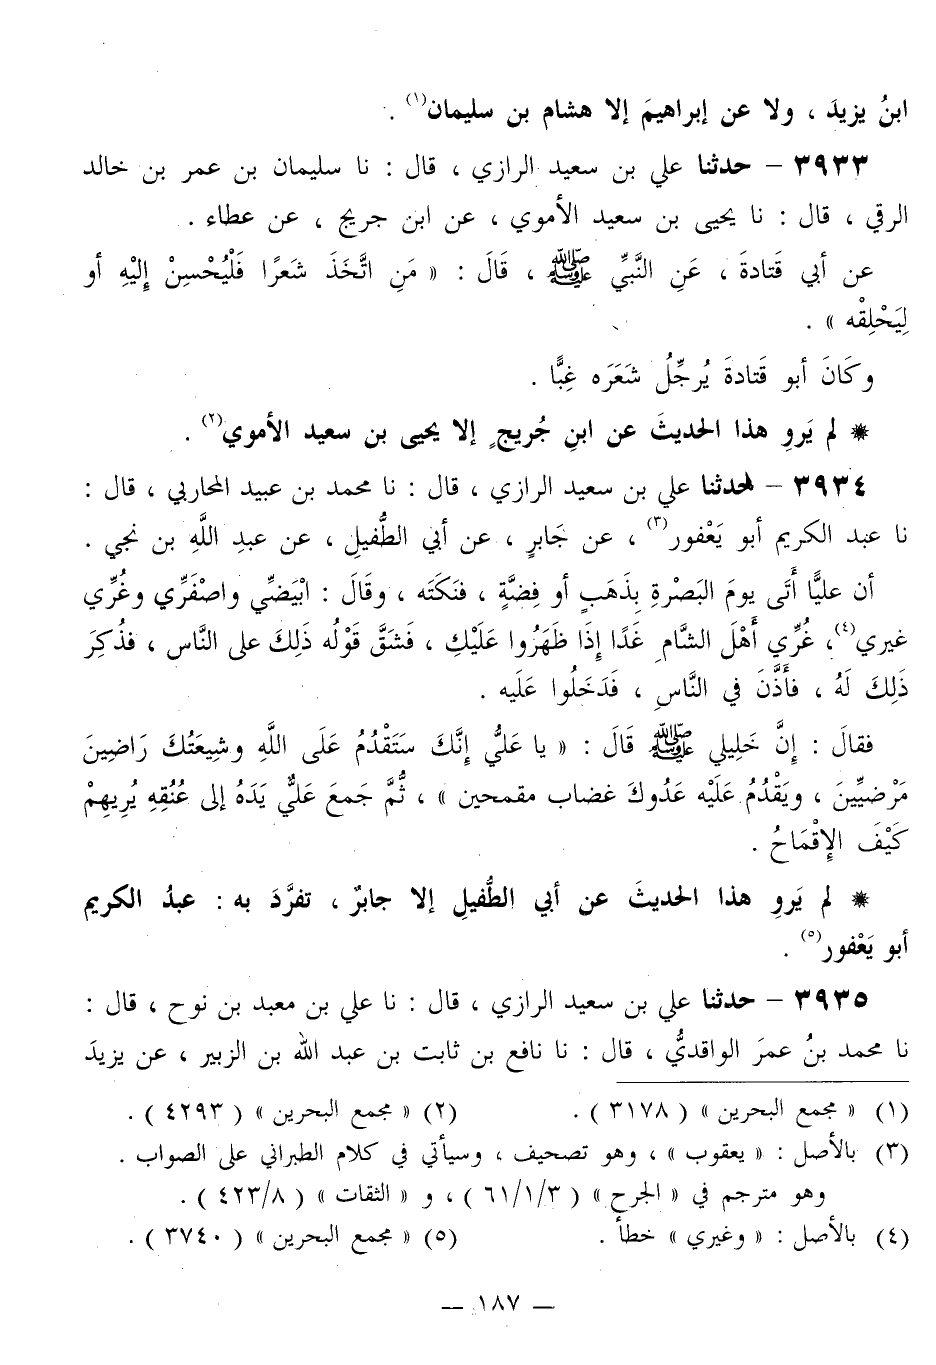 ابنُ يزيدَ ، ولا عن إبراهيمَ إلا هشام بن سليمان(١) .
٣٩٣٣ – حدثنا علي بن سعيد الرازي ، قال : نا سليمان بن عمر بن خالد
الرقي ، قال : نا يحيى بن سعيد الأموي ، عن ابن جريج ، عن عطاء .
عن أبي قَتادةَ ، عَنِ النَّبِيِّ ﷺ ، قَالَ : « مَنِ اتَّخَذَ شَعرًا فَلْيُحْسِنْ إِلَيْهِ أو
لِيَحْلِقْه » .
وكَانَ أبو قَتادةَ يُرجِّلُ شَعَرَه غِبًّا .
* لم يَروِ هذا الحديثَ عن ابنِ جُريجٍ إلا يحيى بن سعيد الأموي(٢) .
٣٩٣٤ – حدثنا علي بن سعيد الرازي ، قال : نا محمد بن عبيد المحاربي ، قال :
نا عبد الكريم أبو يَعْفور(٣) ، عن جَابرٍ ، عن أبي الطُّفيلِ ، عن عبدِ اللَّهِ بن نجي .
أن عليًّا أَتَى يومَ البَصْرةِ بِذَهَبٍ أو فِضَّةٍ ، فنَكَتَه ، وقَالَ : ابْيَضِّي واصْفَرِّي وغُرِّي
غيري(٤)، غُرِّي أَهْلَ الشَّامِ غَدًا إِذَا ظَهَرُوا عَلَيْكِ ، فَشَقَّ قَوْلُه ذَلِكَ على النَّاس ، فذُكِرَ
ذَلِكَ لَهُ ، فأَذَّنَ في النَّاسِ ، فَدَخَلُوا عَلَيه .
فقالَ : إنَّ خَلِيلي ﷺ قَالَ : « يا عَليُّ إِنَّكَ سَتَقْدُمُ عَلَى اللَّهِ وشِيعَتُكَ رَاضِينَ
مَرْضيِّينَ ، ويَقْدُمُ عَلَيْه عَدُوكَ غضاب مقمحين » ، ثُمَّ جَمعَ عَليٌّ يَدَهُ إلى عُنُقِهِ يُرِيهِمْ
كَيْفَ الإِقْمَاحُ .
* لم يَروِ هذا الحديثَ عن أبي الطُّفيلِ إلا جابرٌ ، تفرَّدَ به : عبدُ الكريم
أبو يَعْفور(٥) .
٣٩٣٥ – حدثنا علي بن سعيد الرازي ، قال : نا علي بن معبد بن نوح ، قال :
نا محمد بنُ عمرَ الواقديُّ ، قال : نا نافع بن ثابت بن عبد الله بن الزبير ، عن يزيدَ
(١) « مجمع البحرين » ( ٣١٧٨ ) . (٢) « مجمع البحرين » ( ٤٢٩٣ ) .
(٣) بالأصل : « يعقوب » ، وهو تصحيف ، وسيأتي في كلام الطبراني على الصواب .
وهو مترجم في « الجرح » ( ٦١/١/٣ ) ، و « الثقات » ( ٤٢٣/٨ ) .
(٤) بالأصل : « وغيري » خطأ . (٥) « مجمع البحرين » ( ٣٧٤٠ ) .
— ١٨٧ —